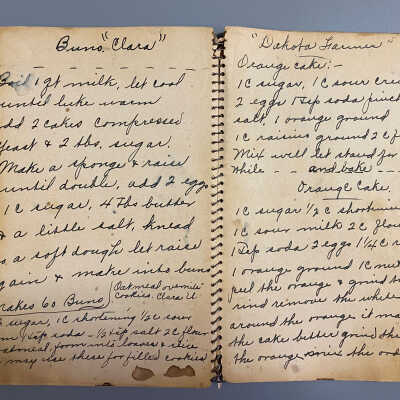 Buns, "Clara"
Boil 1 qt milk, let cool
until luke warm
add 2 cakes compressed
yeast & 2 tbs. sugar.
Make a sponge & raise
until double, add 2 eggs
1 C sugar, 4 Tbs butter
& a little salt, knead
to a soft dough let raise
again & make into buns
makes 60 Buns
Oatmeal
cookies. Clara
sugar, 1 C shortening 1/2 C sour
1 tsp soda - 1/2 tsp salt 2 C flour
oatmeal, form into loaves & slice
may use these for filled cookies
"Dakota Farmer"
Orange cake:-
1 C sugar, 1 C sour
2 eggs 1 tsp soda
salt, 1 orange ground
1 C raisins ground 2 C
Mix well let stand for
while - - and bake - -
Orange Cake
1 C sugar 1/2 C
1 C sour milk 2 C
1 tsp soda 2 eggs 1/4 C
1 orange ground 1 C
peel the orange & grind
rind remove the white
around the orange it
the cake better grind the
the orange mix the